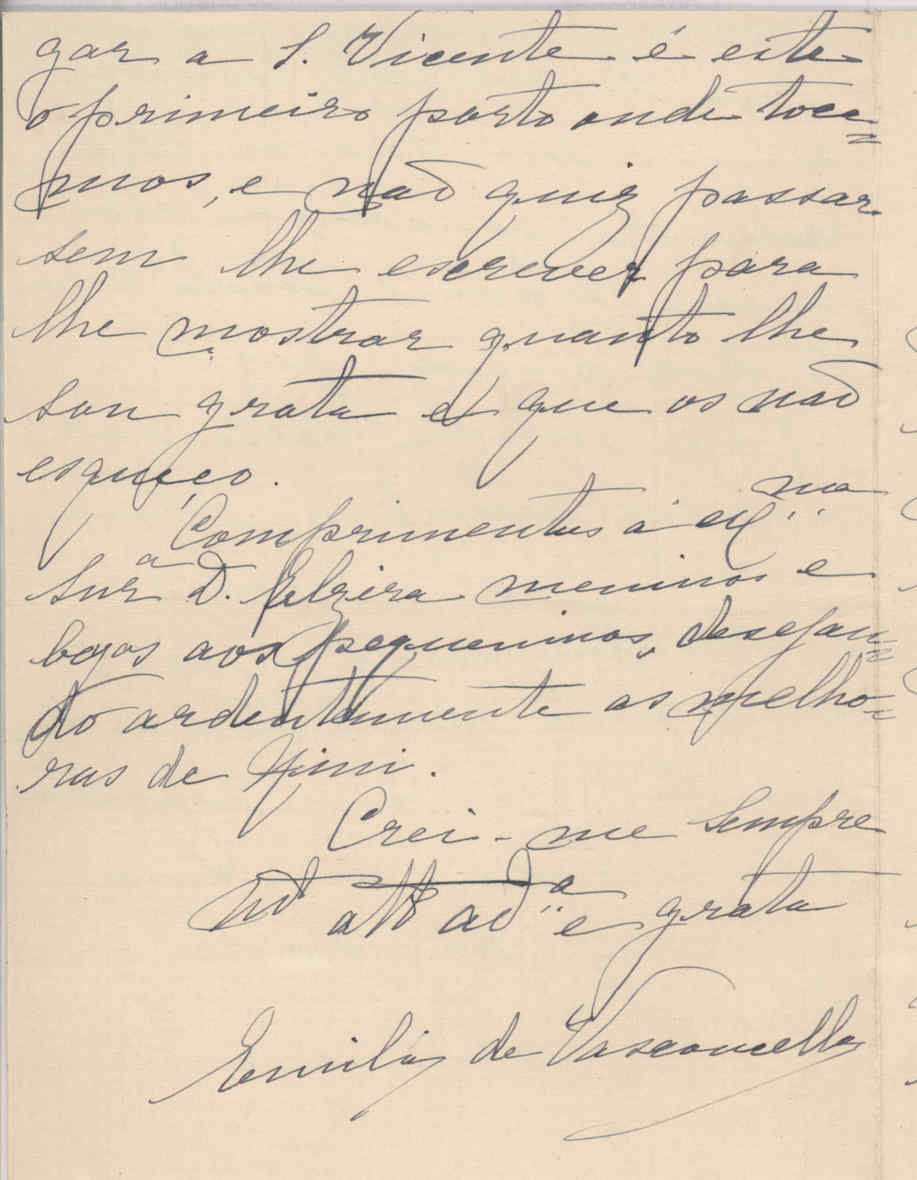 gar a S. Vicente é este
o primeiro porto onde toca=
mos, e não quiz passar
sem lhe escrever para
lhe mostrar quanto lhe
sou grata e que os não
esqueço.
Comprimentos á Exma
Snra D. Elzira meninos e
bejos aos pequeninos, desejan=
do ardentemente as melho=
ras de
Crei-me sempre
att ada e grata
Emilia de Vasconcellos